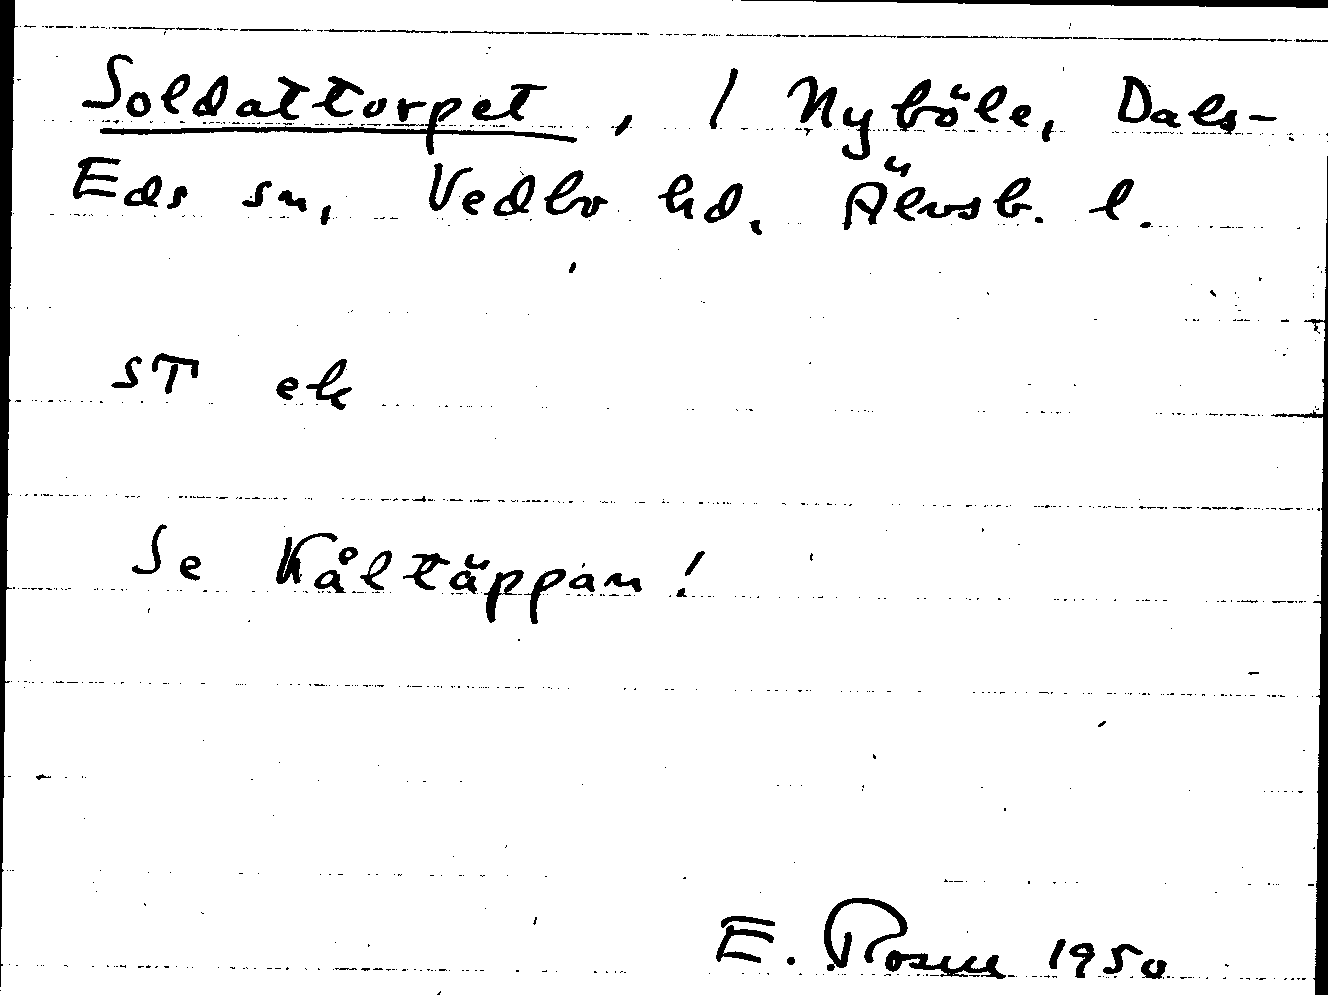 Soldattorpet, / Nyböle, Dals-
Eds sn, Vedbo hd. Älvsb. l.
ST ek
Se Kåltäppan!
E. Rosell 1950